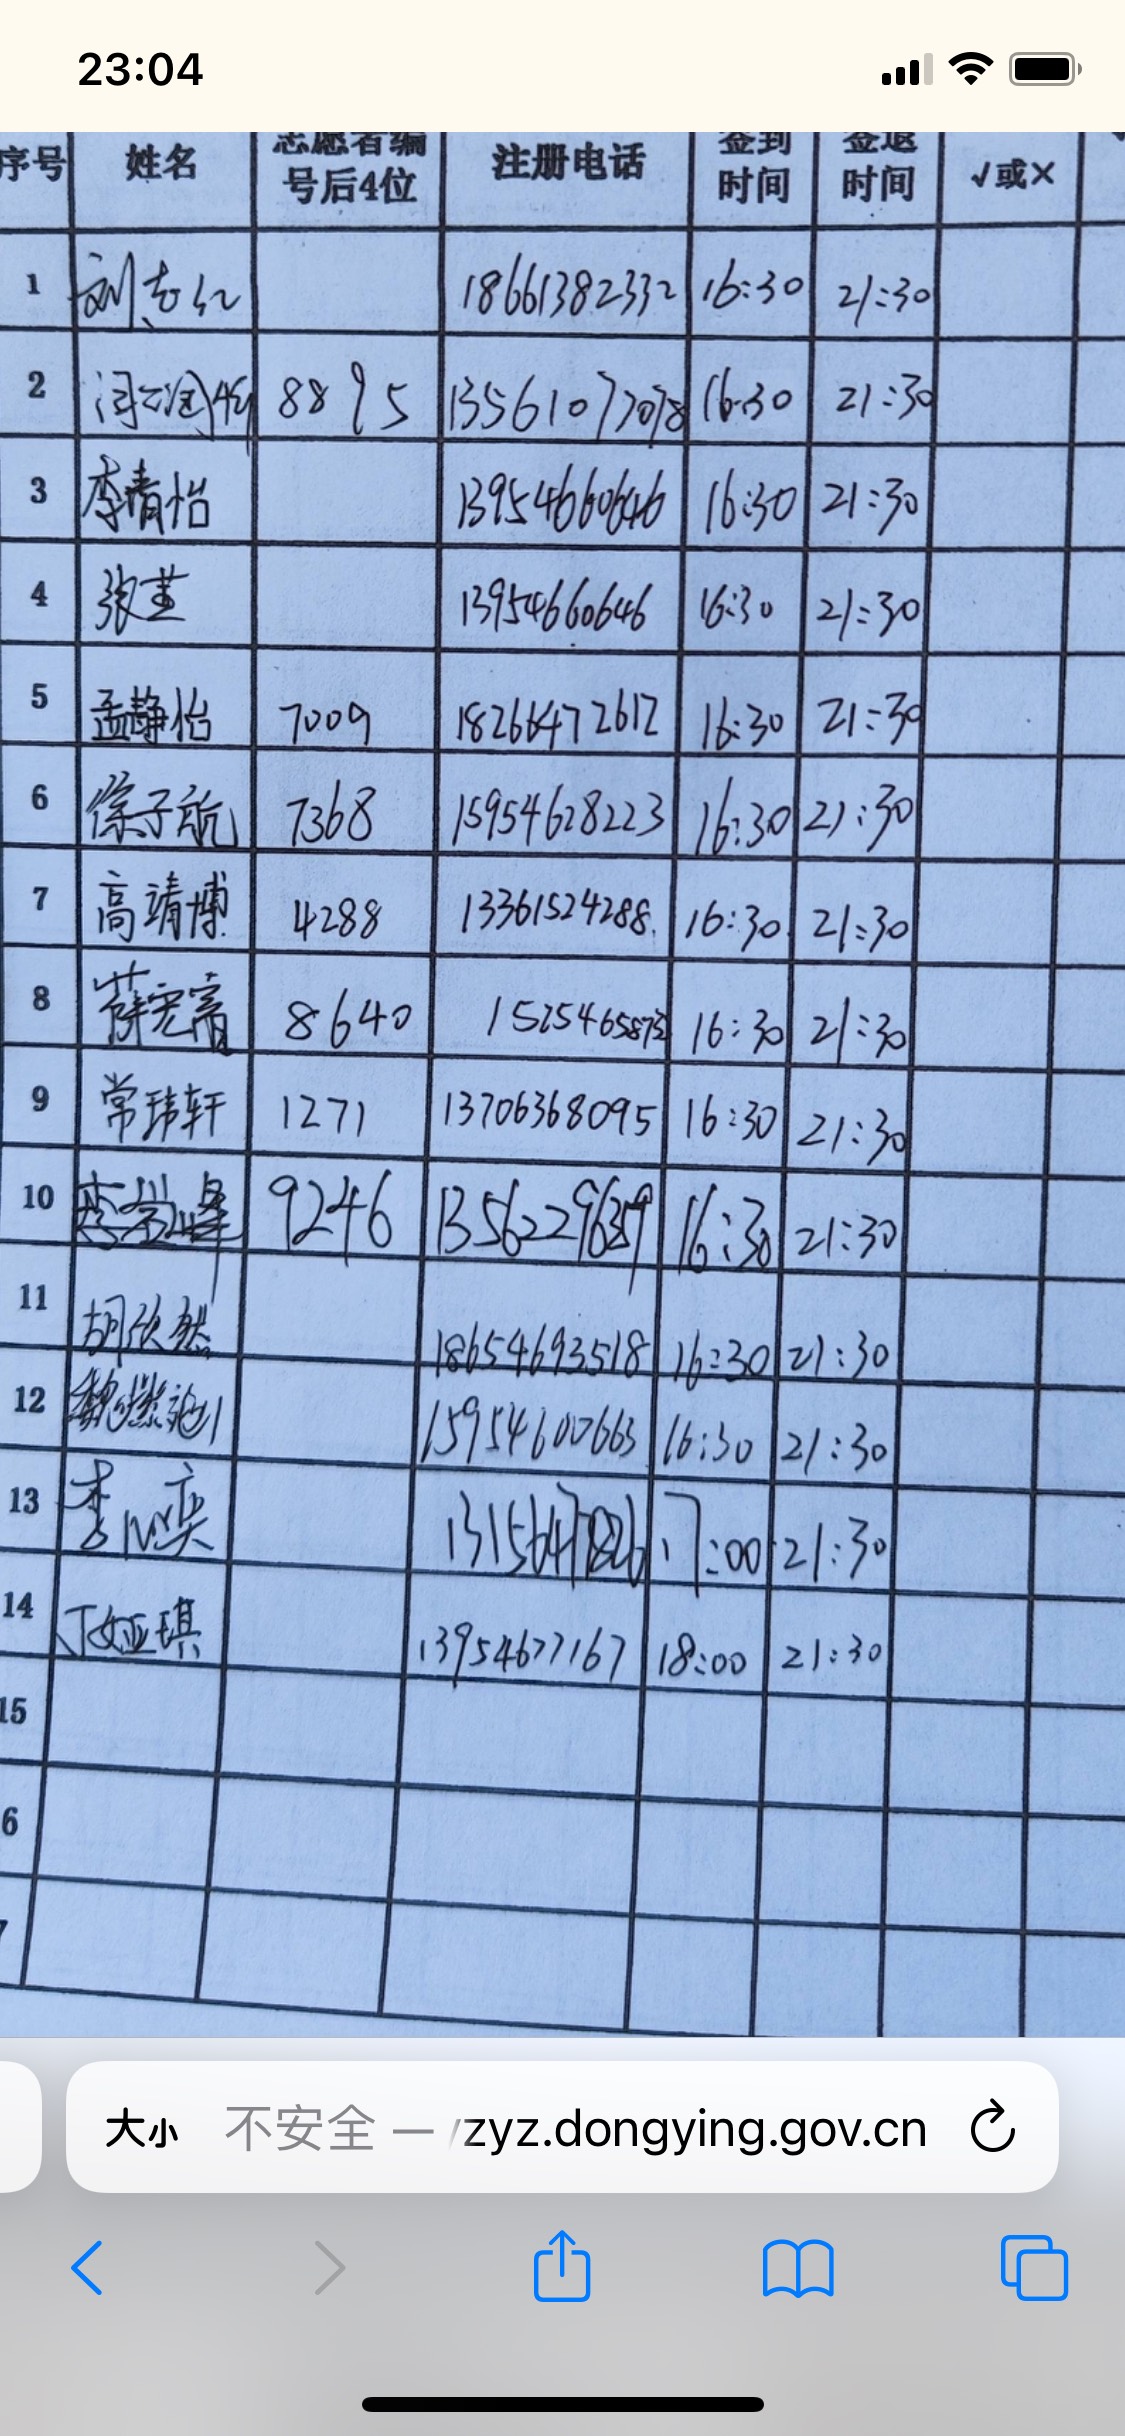 23:04
序号 姓名 志愿者编号后4位 注册电话 签到时间 签退时间 √或×
1 刘志红 18661382332 16:30 21:30
2 8895 13561077078 16:30 21:30
3 李青怡 13954660646 16:30 21:30
4 张堇 13954660646 16:30 21:30
5 孟静怡 7009 18266472612 16:30 21:30
6 徐子航 7368 15954628223 16:30 21:30
7 高靖博 4288 13361524288 16:30 21:30
8 薛宪富 8640 16:30 21:30
9 常玮轩 1271 13706368095 16:30 21:30
10 9246 13562296359 16:30 21:30
11 胡欣然 18654693518 16:30 21:30
12 15954600663 16:30 21:30
13 李心奕 17:00 21:30
14 丁亚琪 13954677167 18:00 21:30
15
6
7
大小 不安全 — zyz.dongying.gov.cn